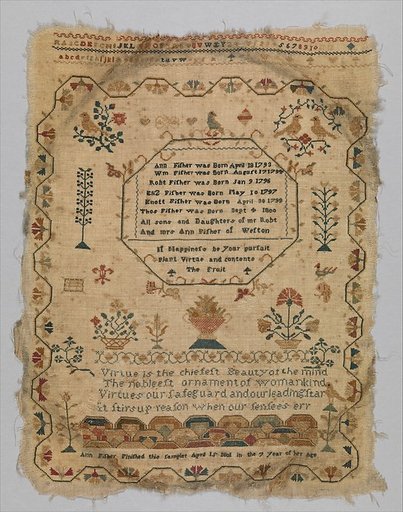 Ann Fisher was Born April 13 1793
Wm Fisher was Born August 19 1794
Robt Fisher was Born Jan 9 1796
Eliz Fisher was Born May 10 1797
Knott Fisher was Born April 30 1799
Thos Fisher was Born Sept 4 1800
All sons and Daughters of mr Robt
And mrs Ann Fisher of Wefton
If Happinefs be your purfuit
plant Virtue and contents
The fruit
Virtue is the chiefest Beauty of the mind
The nobleest ornament of womankind
Virtues our safeguard and our leading star
it stirs up reason when our senfees err
Ann Fisher Finished this sampler April 15 1801 in the 7 year of her age